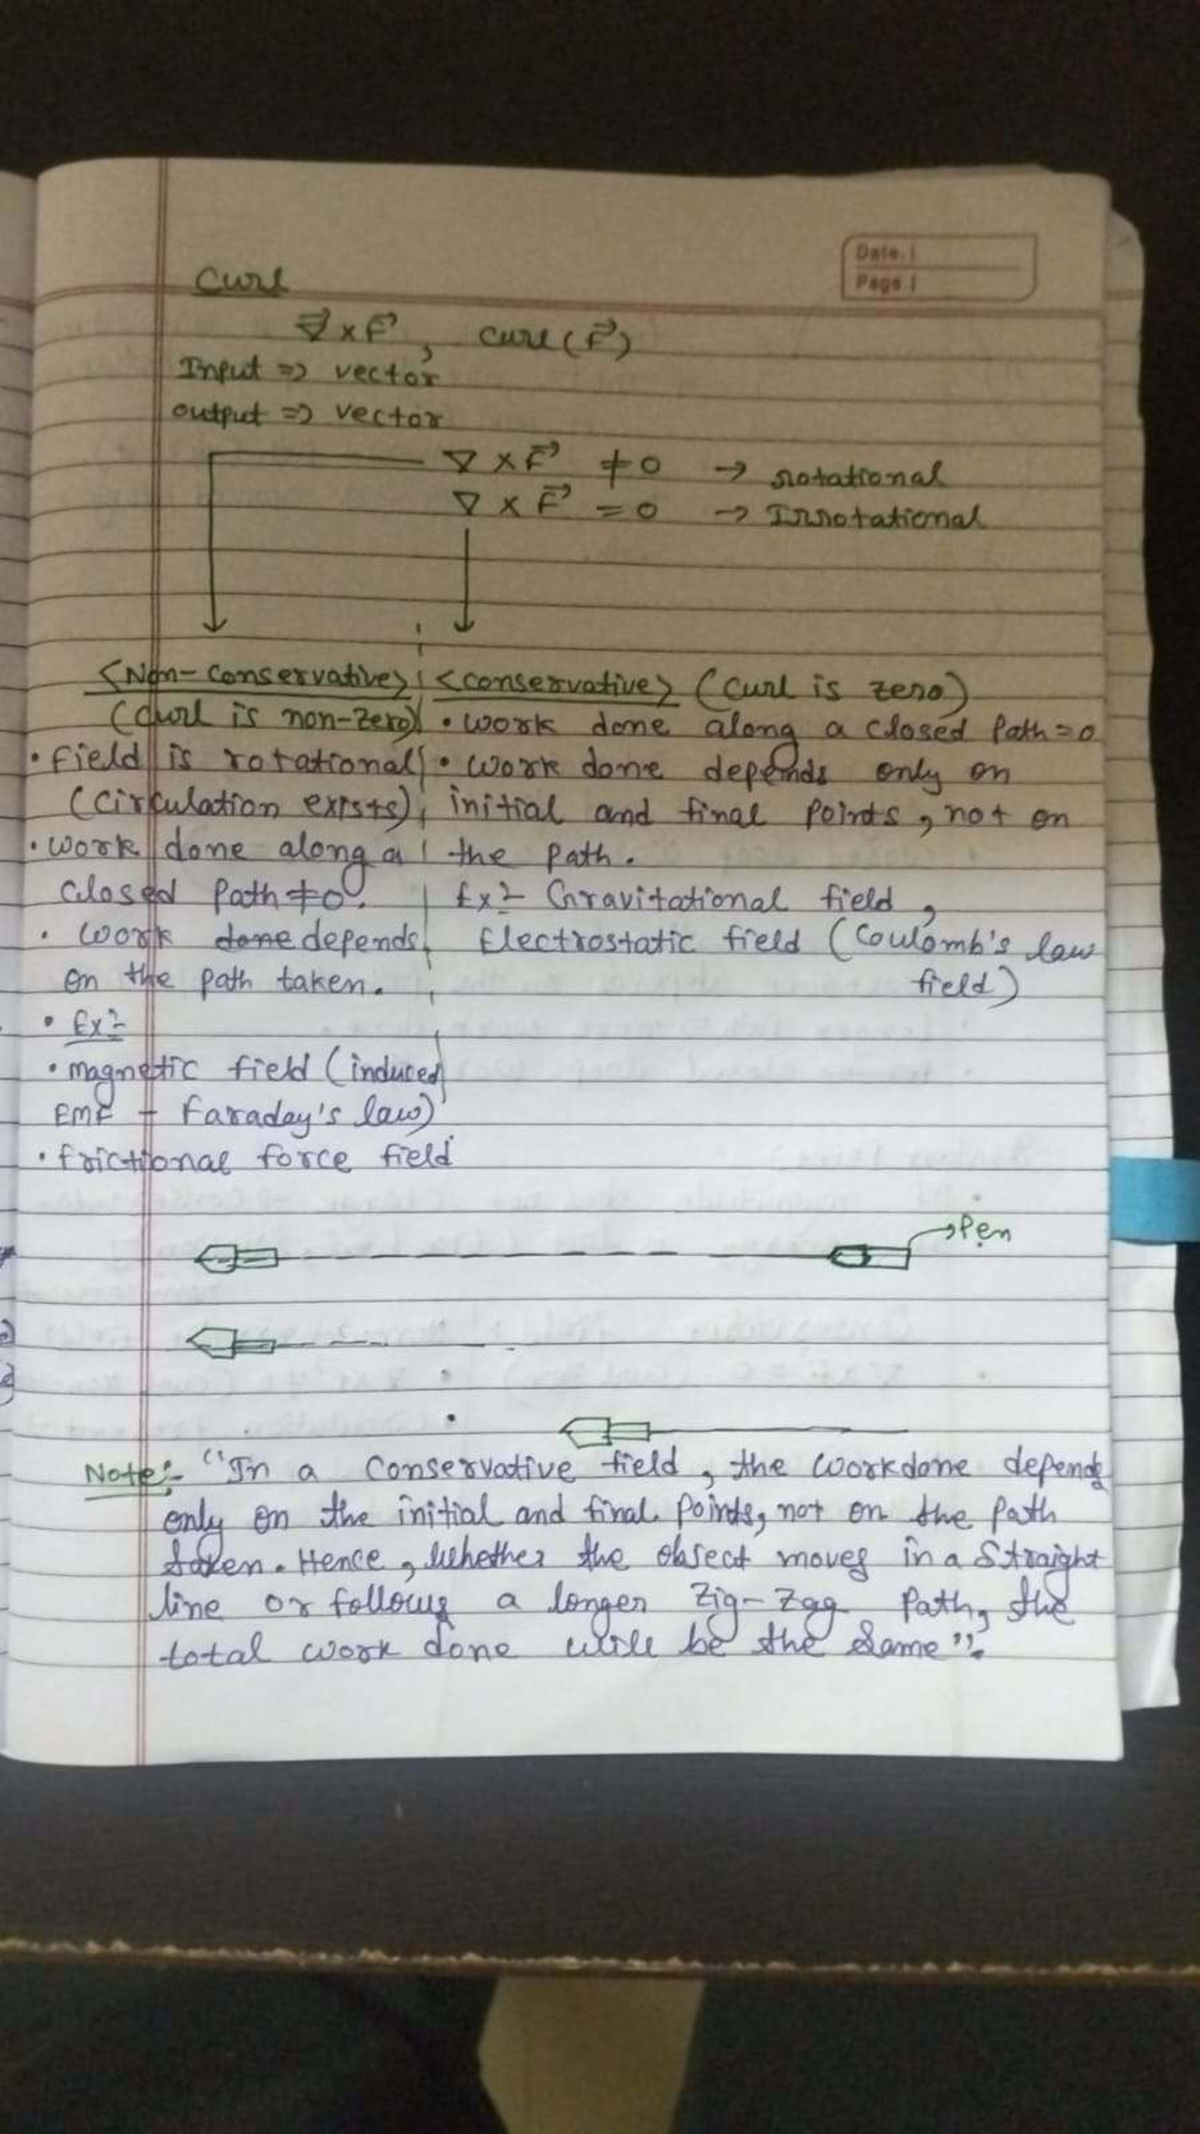 Date. |
Page |
Curl
∇⃗ × F⃗ , curl (F⃗)
Input => vector
output => vector
∇ × F⃗ ≠ 0 → rotational
∇ × F⃗ = 0 → Irrotational
<Non-conservative>
(curl is non-zero)
• field is rotational
(circulation exists)
• work done along a
closed Path ≠ 0.
• work done depends
on the path taken.
• Ex:-
• magnetic field (induced
EMF - Faraday's law)
• frictional force field
<conservative> (curl is zero)
• work done along a closed Path = 0
• work done depends only on
initial and final points, not on
the path.
Ex:- Gravitational field,
Electrostatic field (Coulomb's law
field)
→ Pen
Note:- "In a Conservative field, the workdone depends
only on the initial and final points, not on the path
taken. Hence, whether the obsect moves in a Straight
line or follows a longer Zig-Zag Path, the
total work done will be the same".